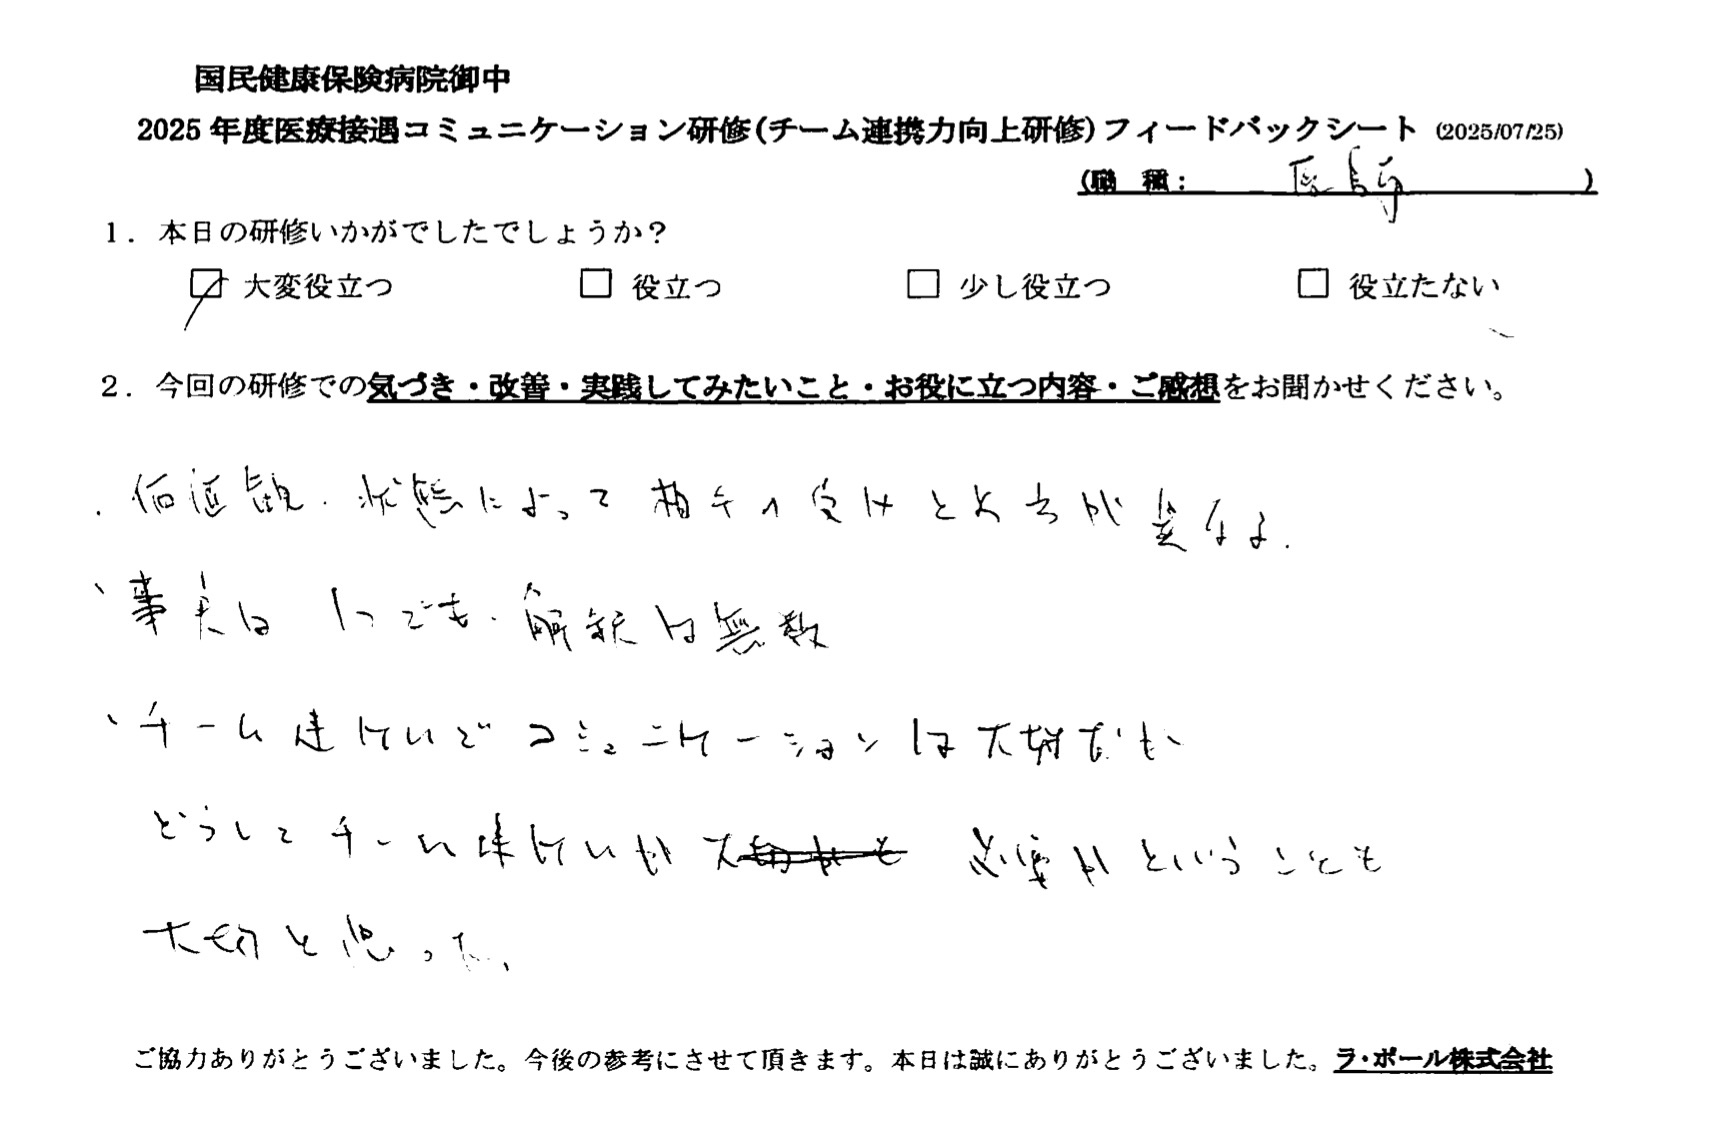 国民健康保険病院御中
2025年度医療接遇コミュニケーション研修(チーム連携力向上研修)フィードバックシート (2025/07/25)
(職 種： 医師)
1．本日の研修いかがでしたでしょうか？
☑ 大変役立つ □ 役立つ □ 少し役立つ □ 役立たない
2．今回の研修での気づき・改善・実践してみたいこと・お役に立つ内容・ご感想をお聞かせください。
・価値観・状態によって相手の受けとめ方が異なる．
・事実は1つでも、解釈は無数
・チーム連けいでコミュニケーションは大切だが
どうしてチーム連けいが 必要かということも
大切と思った。
ご協力ありがとうございました。今後の参考にさせて頂きます。本日は誠にありがとうございました。ラ・ポール株式会社